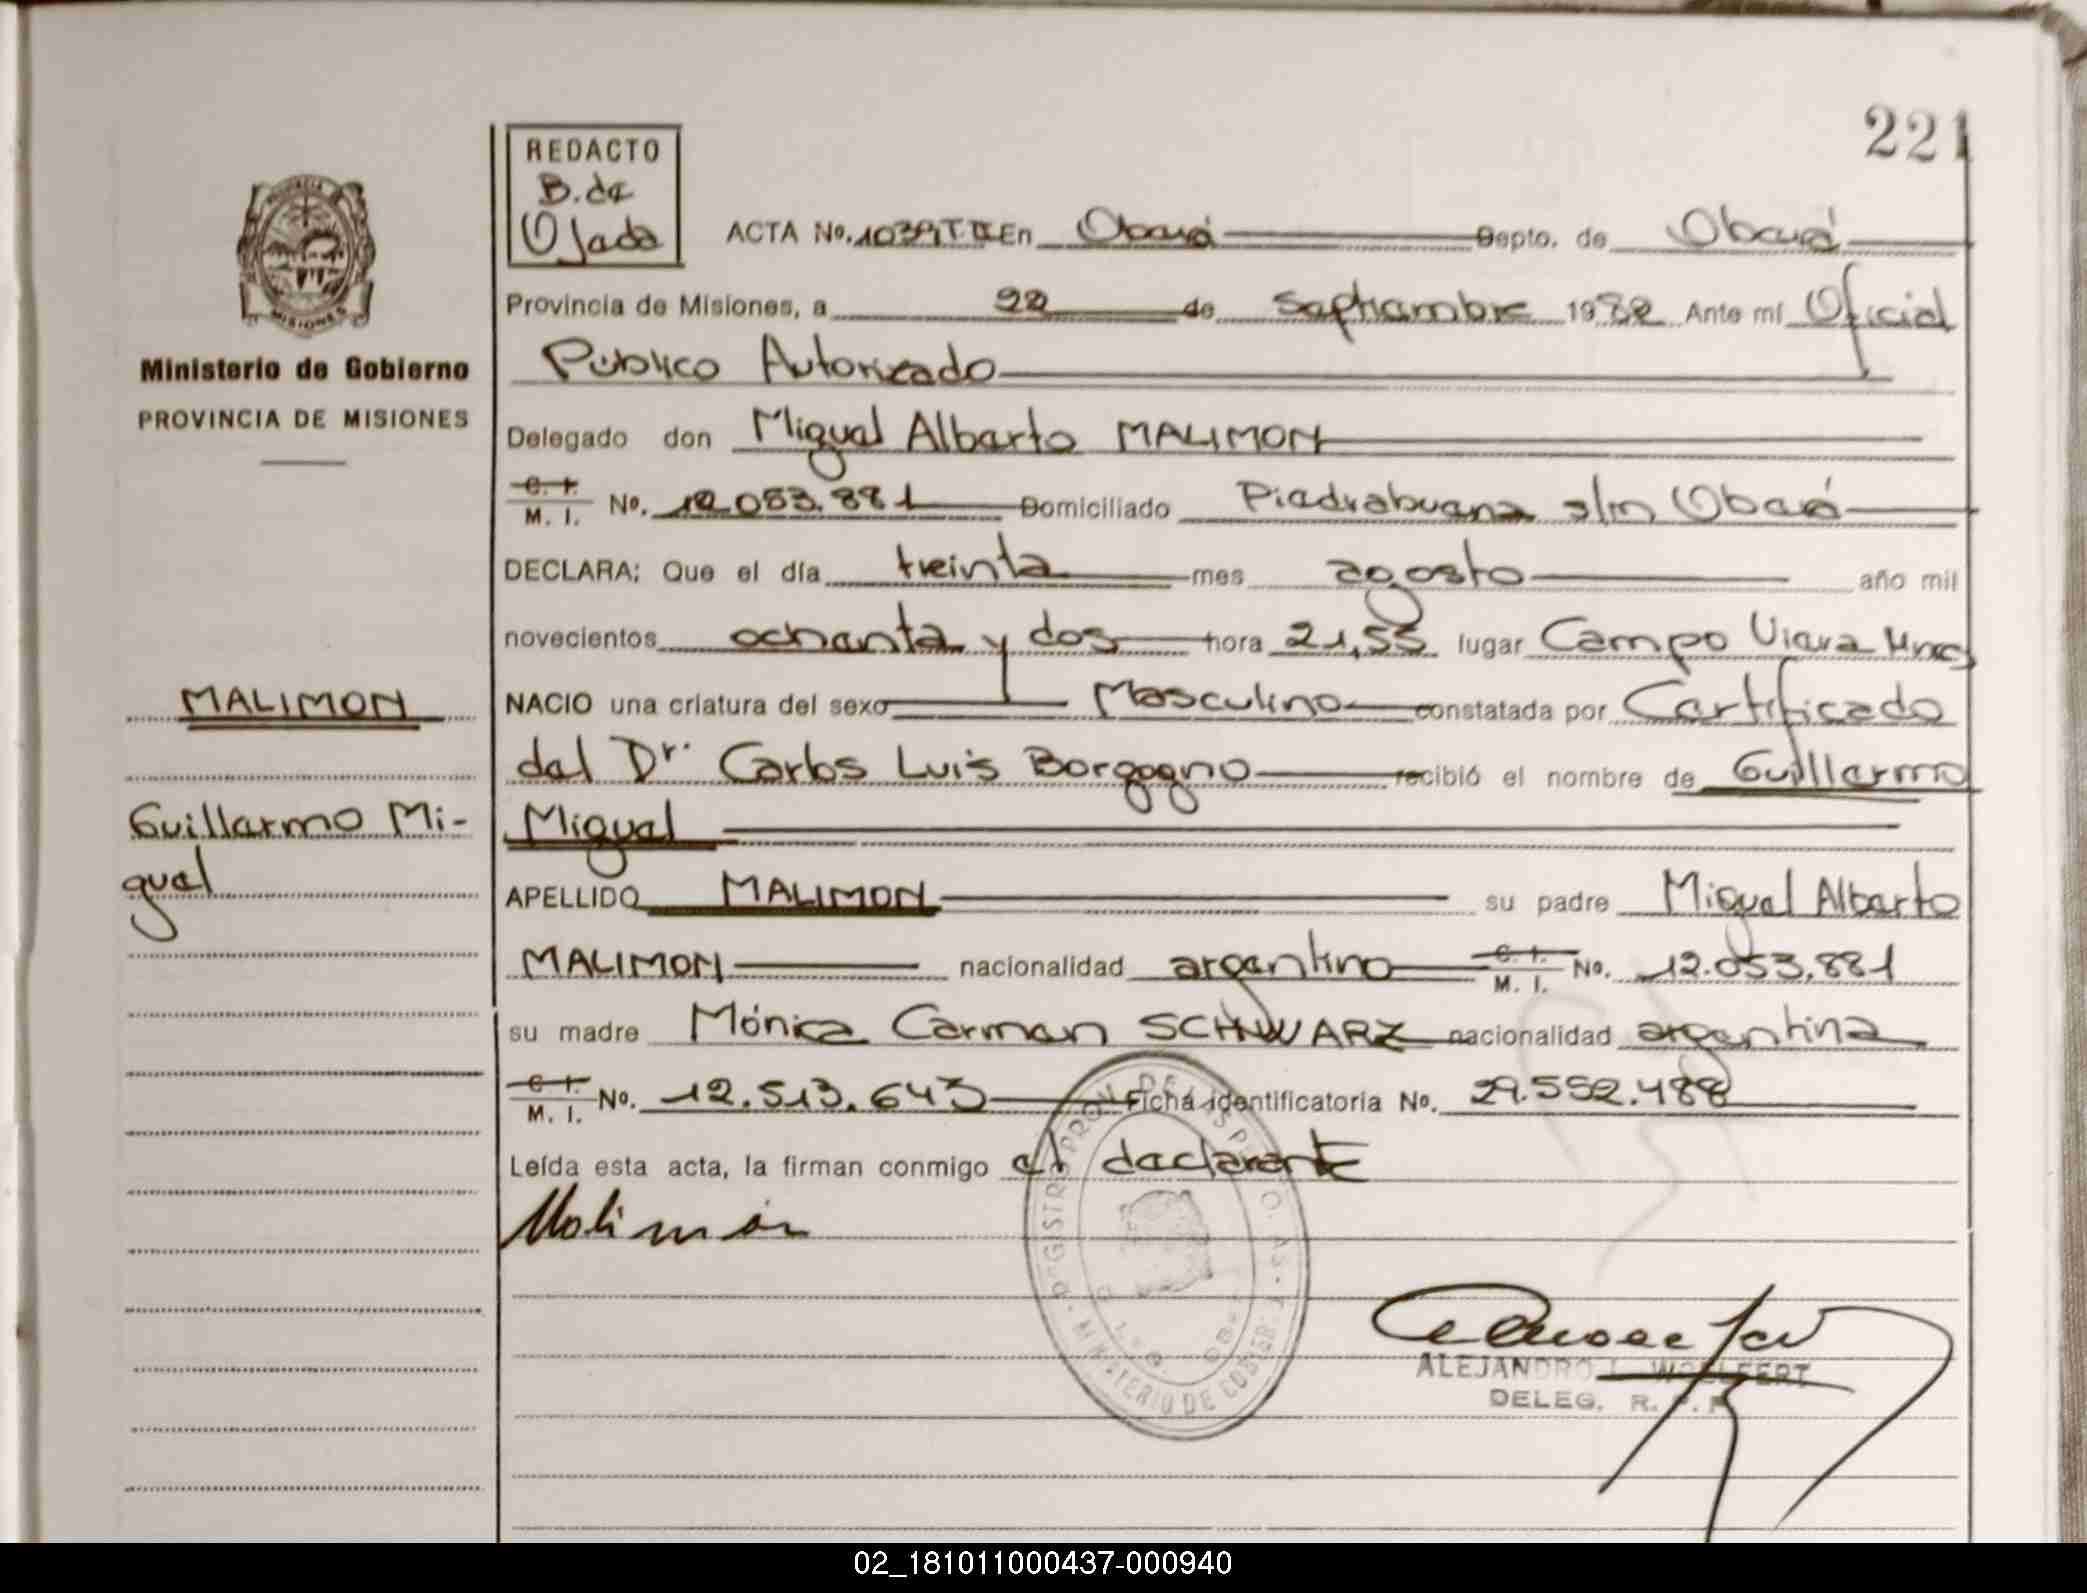 221
REDACTO
B. de
Ojeda
ACTA No. 1039 T II En Oberá Depto. de Oberá
Provincia de Misiones, a 22 de Septiembre 1982 Ante mí Oficial
Público Autorizado
Delegado don Miguel Alberto MALIMON
C. I.
M. I. No. 12.053.881 Domiciliado Piedrabuena s/n Oberá
DECLARA: Que el día treinta mes agosto año mil
novecientos ochenta y dos hora 21,55 lugar Campo Viera Mnes
NACIO una criatura del sexo Masculino constatada por Certificado
del Dr. Carlos Luis Borgogno recibió el nombre de Guillermo
Miguel
APELLIDO MALIMON su padre Miguel Alberto
MALIMON nacionalidad argentino C. I. M. I. No. 12.053.881
su madre Mónica Carmen SCHWARZ nacionalidad argentina
C. I.
M. I. No. 12.513.643 Ficha identificatoria No. 29.552.488
Leída esta acta, la firman conmigo el declarante
Malimón
ALEJANDRO WOELFERT
DELEG. R.
MINISTERIO DE GOBIER
PROVINCIA
MISIONES
Ministerio de Gobierno
PROVINCIA DE MISIONES
MALIMON
Guillermo Mi-
guel
02_181011000437-000940